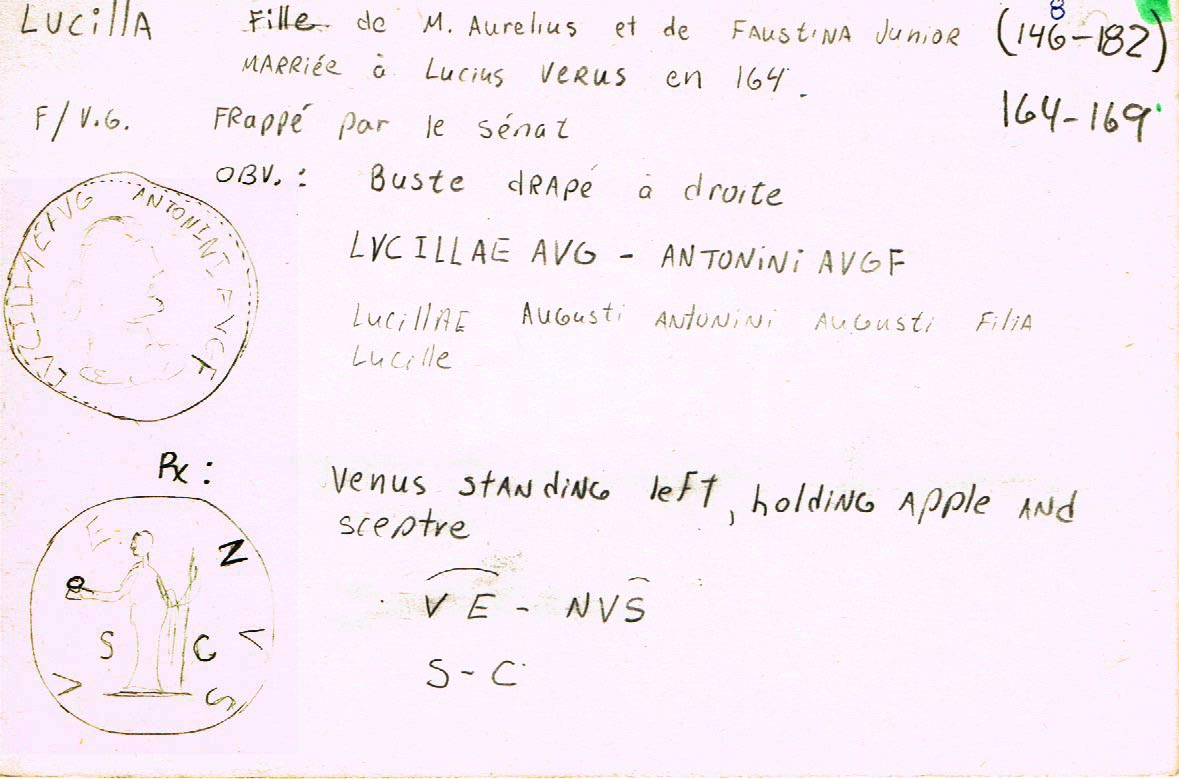 LUCILLA Fille de M. Aurelius et de FAUSTINA Junior (146-182)
8
MARRiée à Lucius VERUS en 164.
164-169
F/V.G. FRappé par le sénat
OBV. : Buste dRAPé à droite
LVCILLAE AVG ANTONINI AVGF
LVCILLAE AVG - ANTONiNi AVGF
LucillAE AUGusti ANtONINI AUGUSti FiliA
Lucille
Rx :
Venus stANdiNG leFT, holdiNG Apple ANd
sceptre
V E N V S
S C
V E - NVS
S - C